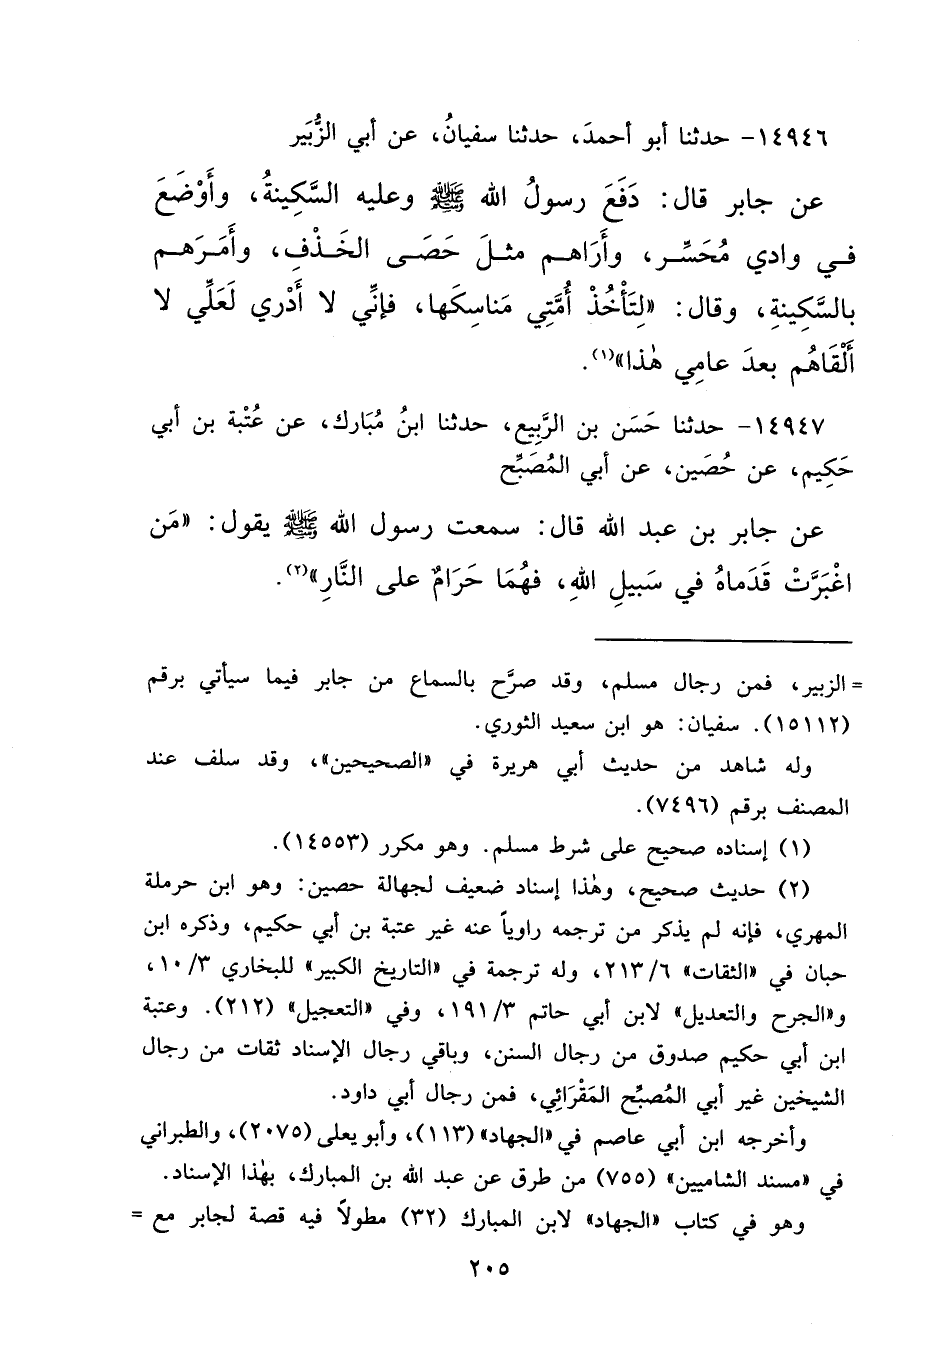 ١٤٩٤٦- حدثنا أبو أحمدَ، حدثنا سفيانُ، عن أبي الزُّبَير
عن جابر قال: دَفَعَ رسولُ الله ﷺ وعليه السَّكِينةُ، وأَوْضَعَ
في وادي مُحَسِّر، وأَرَاهم مثلَ حَصَى الخَذْفِ، وأَمَرَهم
بالسَّكِينةِ، وقال: «لِتَأْخُذْ أُمَّتِي مَناسِكَها، فإنِّي لا أَدْري لَعَلِّي لا
أَلْقَاهُم بعدَ عامِي هٰذا»(١).
١٤٩٤٧- حدثنا حَسَن بن الرَّبِيع، حدثنا ابنُ مُبَارك، عن عُتْبة بن أبي
حَكِيم، عن حُصَين، عن أبي المُصَبِّح
عن جابر بن عبد الله قال: سمعت رسول الله ﷺ يقول: «مَن
اغْبَرَّتْ قَدَماهُ في سَبيلِ اللهِ، فهُمَا حَرَامٌ على النَّارِ»(٢).
= الزبير، فمن رجال مسلم، وقد صرَّح بالسماع من جابر فيما سيأتي برقم
(١٥١١٢). سفيان: هو ابن سعيد الثوري.
وله شاهد من حديث أبي هريرة في «الصحيحين»، وقد سلف عند
المصنف برقم (٧٤٩٦).
(١) إسناده صحيح على شرط مسلم. وهو مكرر (١٤٥٥٣).
(٢) حديث صحيح، وهٰذا إسناد ضعيف لجهالة حصين: وهو ابن حرملة
المهري، فإنه لم يذكر من ترجمه راوياً عنه غير عتبة بن أبي حكيم، وذكره ابن
حبان في «الثقات» ٢١٣/٦، وله ترجمة في «التاريخ الكبير» للبخاري ١٠/٣،
و«الجرح والتعديل» لابن أبي حاتم ١٩١/٣، وفي «التعجيل» (٢١٢). وعتبة
ابن أبي حكيم صدوق من رجال السنن، وباقي رجال الإسناد ثقات من رجال
الشيخين غير أبي المُصبِّح المَقْرَائي، فمن رجال أبي داود.
وأخرجه ابن أبي عاصم في «الجهاد» (١١٣)، وأبو يعلى (٢٠٧٥)، والطبراني
في «مسند الشاميين» (٧٥٥) من طرق عن عبد الله بن المبارك، بهٰذا الإسناد.
وهو في كتاب «الجهاد» لابن المبارك (٣٢) مطولاً فيه قصة لجابر مع =
٢٠٥